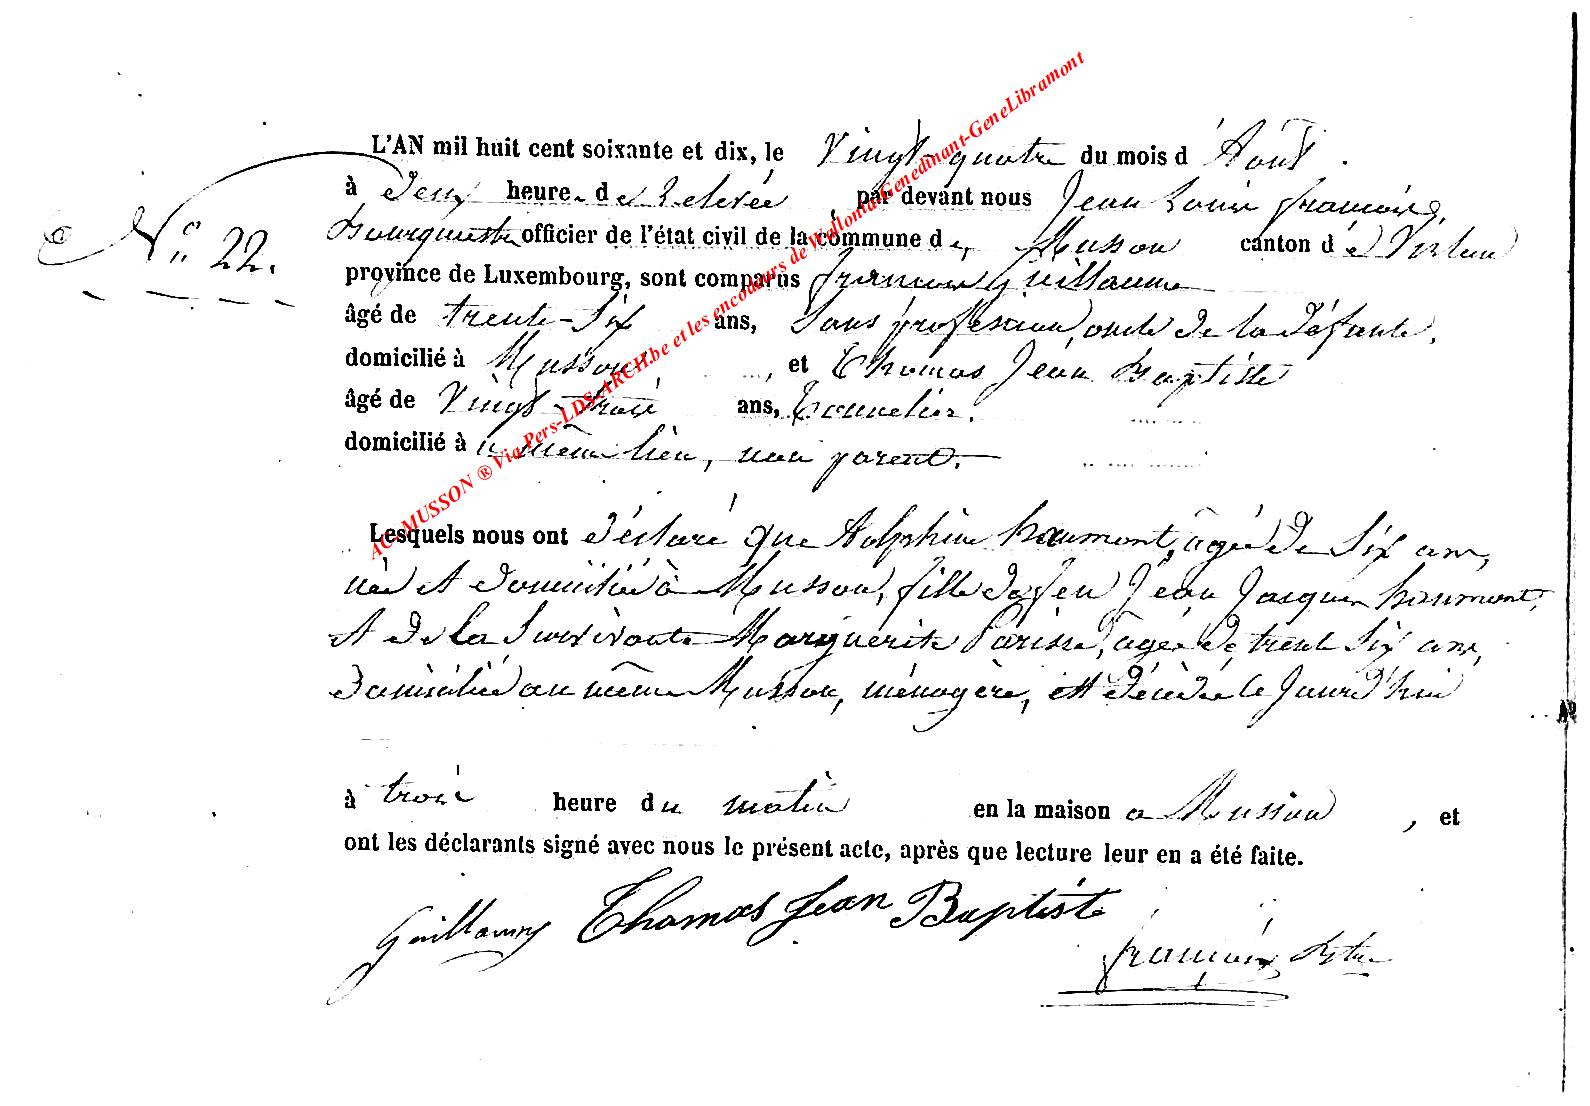 L'AN mil huit cent soixante et dix, le Vingt-quatre du mois d'Août.
à deux heures de relevée, par devant nous Jean Louis françois,
N° 22. Bourguestre officier de l'état civil de la commune de Musson canton de Virton
province de Luxembourg, sont comparus françois Guillaume
âgé de trente-six ans, sans profession, oncle de la défunte,
domicilié à Musson, et Thomas Jean Baptiste
âgé de Vingt-trois ans, tonnelier,
domicilié à même lieu, non parent.
Lesquels nous ont déclaré que Adolphine haumont, âgée de six ans,
née et domiciliée à Musson, fille de feu Jean Jacques haumont,
et de la survivante Marguerite Parisse, âgée de trente six ans,
domiciliée au même Musson, ménagère, est décédée le jourd'hui
à trois heure du matin en la maison a Musson, et
ont les déclarants signé avec nous le présent acte, après que lecture leur en a été faite.
Guillaume Thomas Jean Baptiste
françois
AC-MUSSON ® Via Pers-LDS-ARCH.be et les encodeurs de Wallonia-Genedinant-GeneLibramont